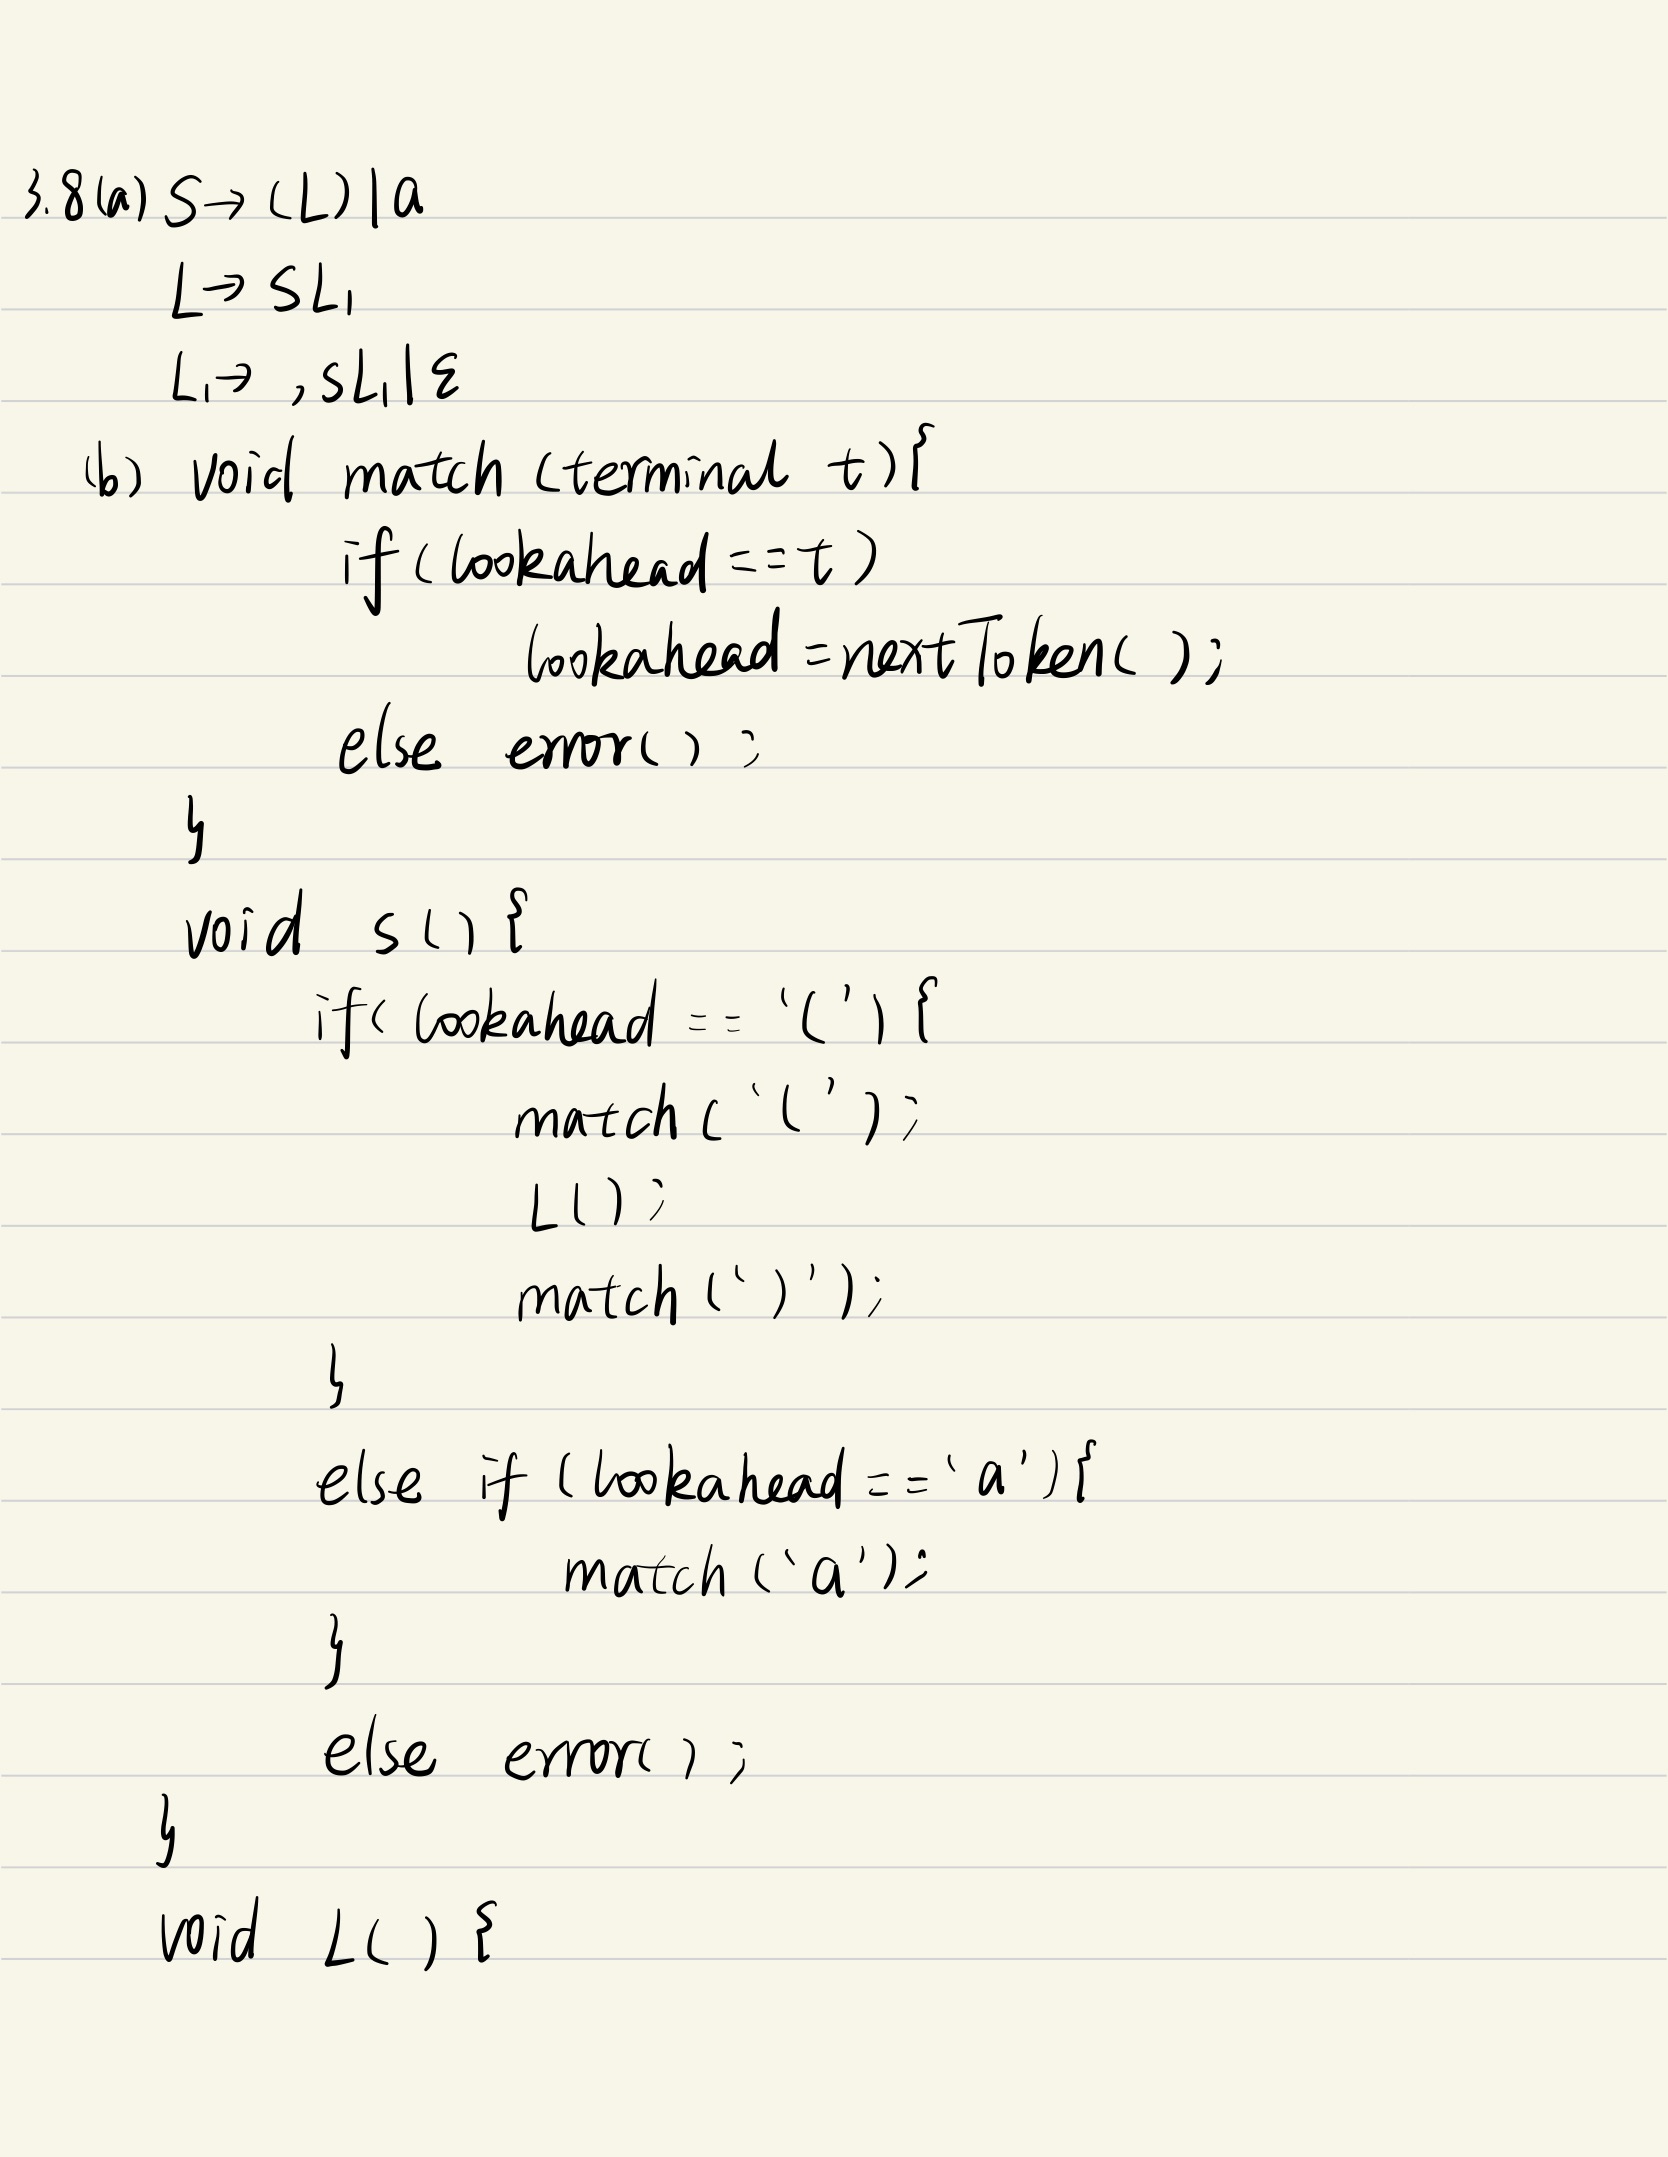 3.8(a) S→(L)|a
L→SL₁
L₁→,SL₁|ε
(b) void match (terminal t){
if(lookahead==t)
lookahead=nextToken( );
else error( );
}
void S(){
if( lookahead == '('){
match( '(' );
L();
match(')');
}
else if (lookahead=='a'){
match('a');
}
else error( );
}
void L( ) {